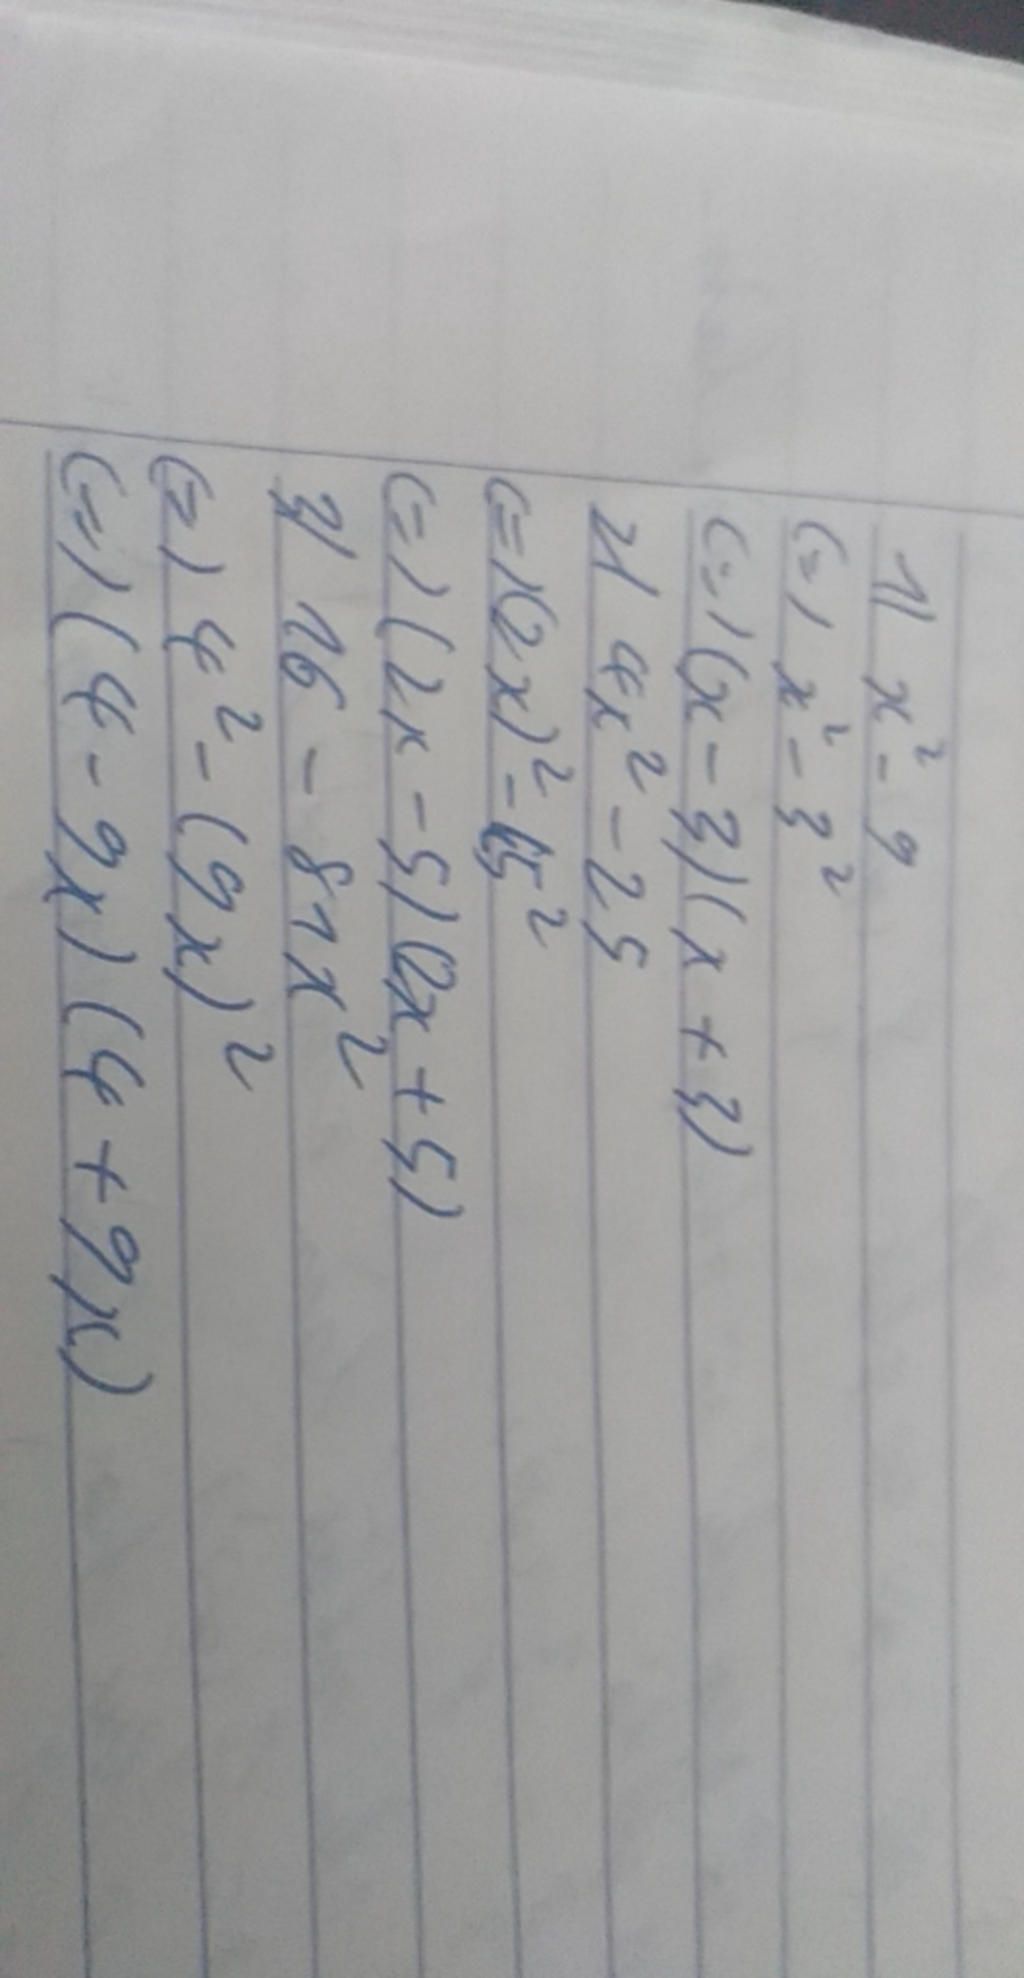 1) x² - 9
<=> x² - 3²
<=> (x - 3)(x + 3)
2) 4x² - 25
<=> (2x)² - 5²
<=> (2x - 5)(2x + 5)
3) 16 - 81x²
<=> 4² - (9x)²
<=> (4 - 9x)(4 + 9x)